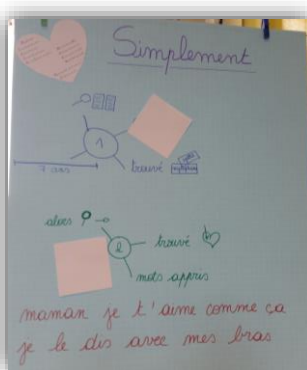 Simplement
1
7 ans
trouvé
alors
2
trouvé
mots appris
maman je t'aime comme ça
je le dis avec mes bras